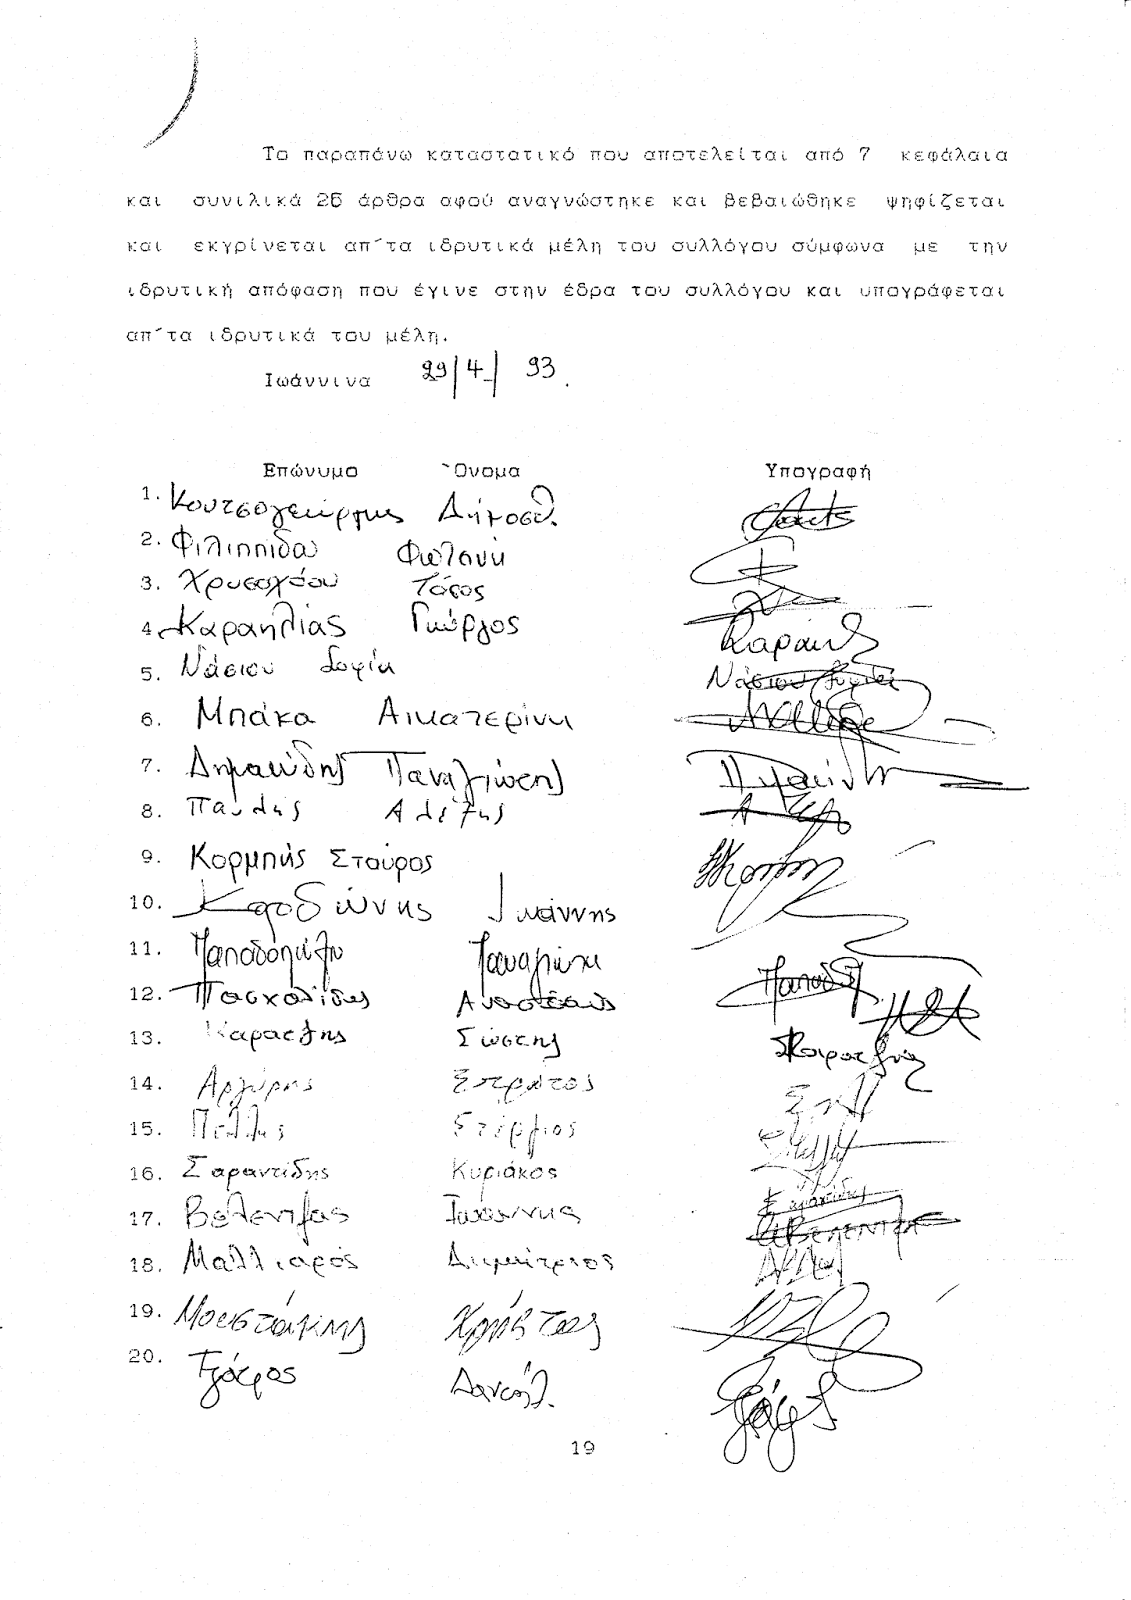 Το παραπάνω καταστατικό που αποτελείται από 7 κεφάλαια
και συνιλικά 26 άρθρα αφού αναγνώστηκε και βεβαιώθηκε ψηφίζεται
και εκγρίνεται απ΄τα ιδρυτικά μέλη του συλλόγου σύμφωνα με την
ιδρυτική απόφαση που έγινε στην έδρα του συλλόγου και υπογράφεται
απ΄τα ιδρυτικά του μέλη.
Ιωάννινα 29/4/93.
Επώνυμο Όνομα Υπογραφή
1. Κουτσογεώργης Δήμοσθ.
2. Φιλιππίδου Φωτεινή
3. Χρυσοχόου Τάσος
4. Καραηλίας Γιώργος
5. Νάσιου Σοφία Νάσιου Σοφία
6. Μπάκα Αικατερίνη
7. Δημακίδης Παναγιώτης
8. Παυλής Αλέξης
9. Κορμπής Σταύρος
10. Ιωάννης
11. Παναγιώτης
12. Πασχαλίδης Αναστάσιος
13. Καρατζής Σώστης
14. Αργύρης Στράτος
15. Πέλλης Στέργιος
16. Σαραντίδης Κυριάκος
17. Βελεντζας Ιωάννης
18. Μαλλιαρός Δημήτριος
19. Μουστάκης Χρήστος
20. Τζάφος Δανιήλ
19